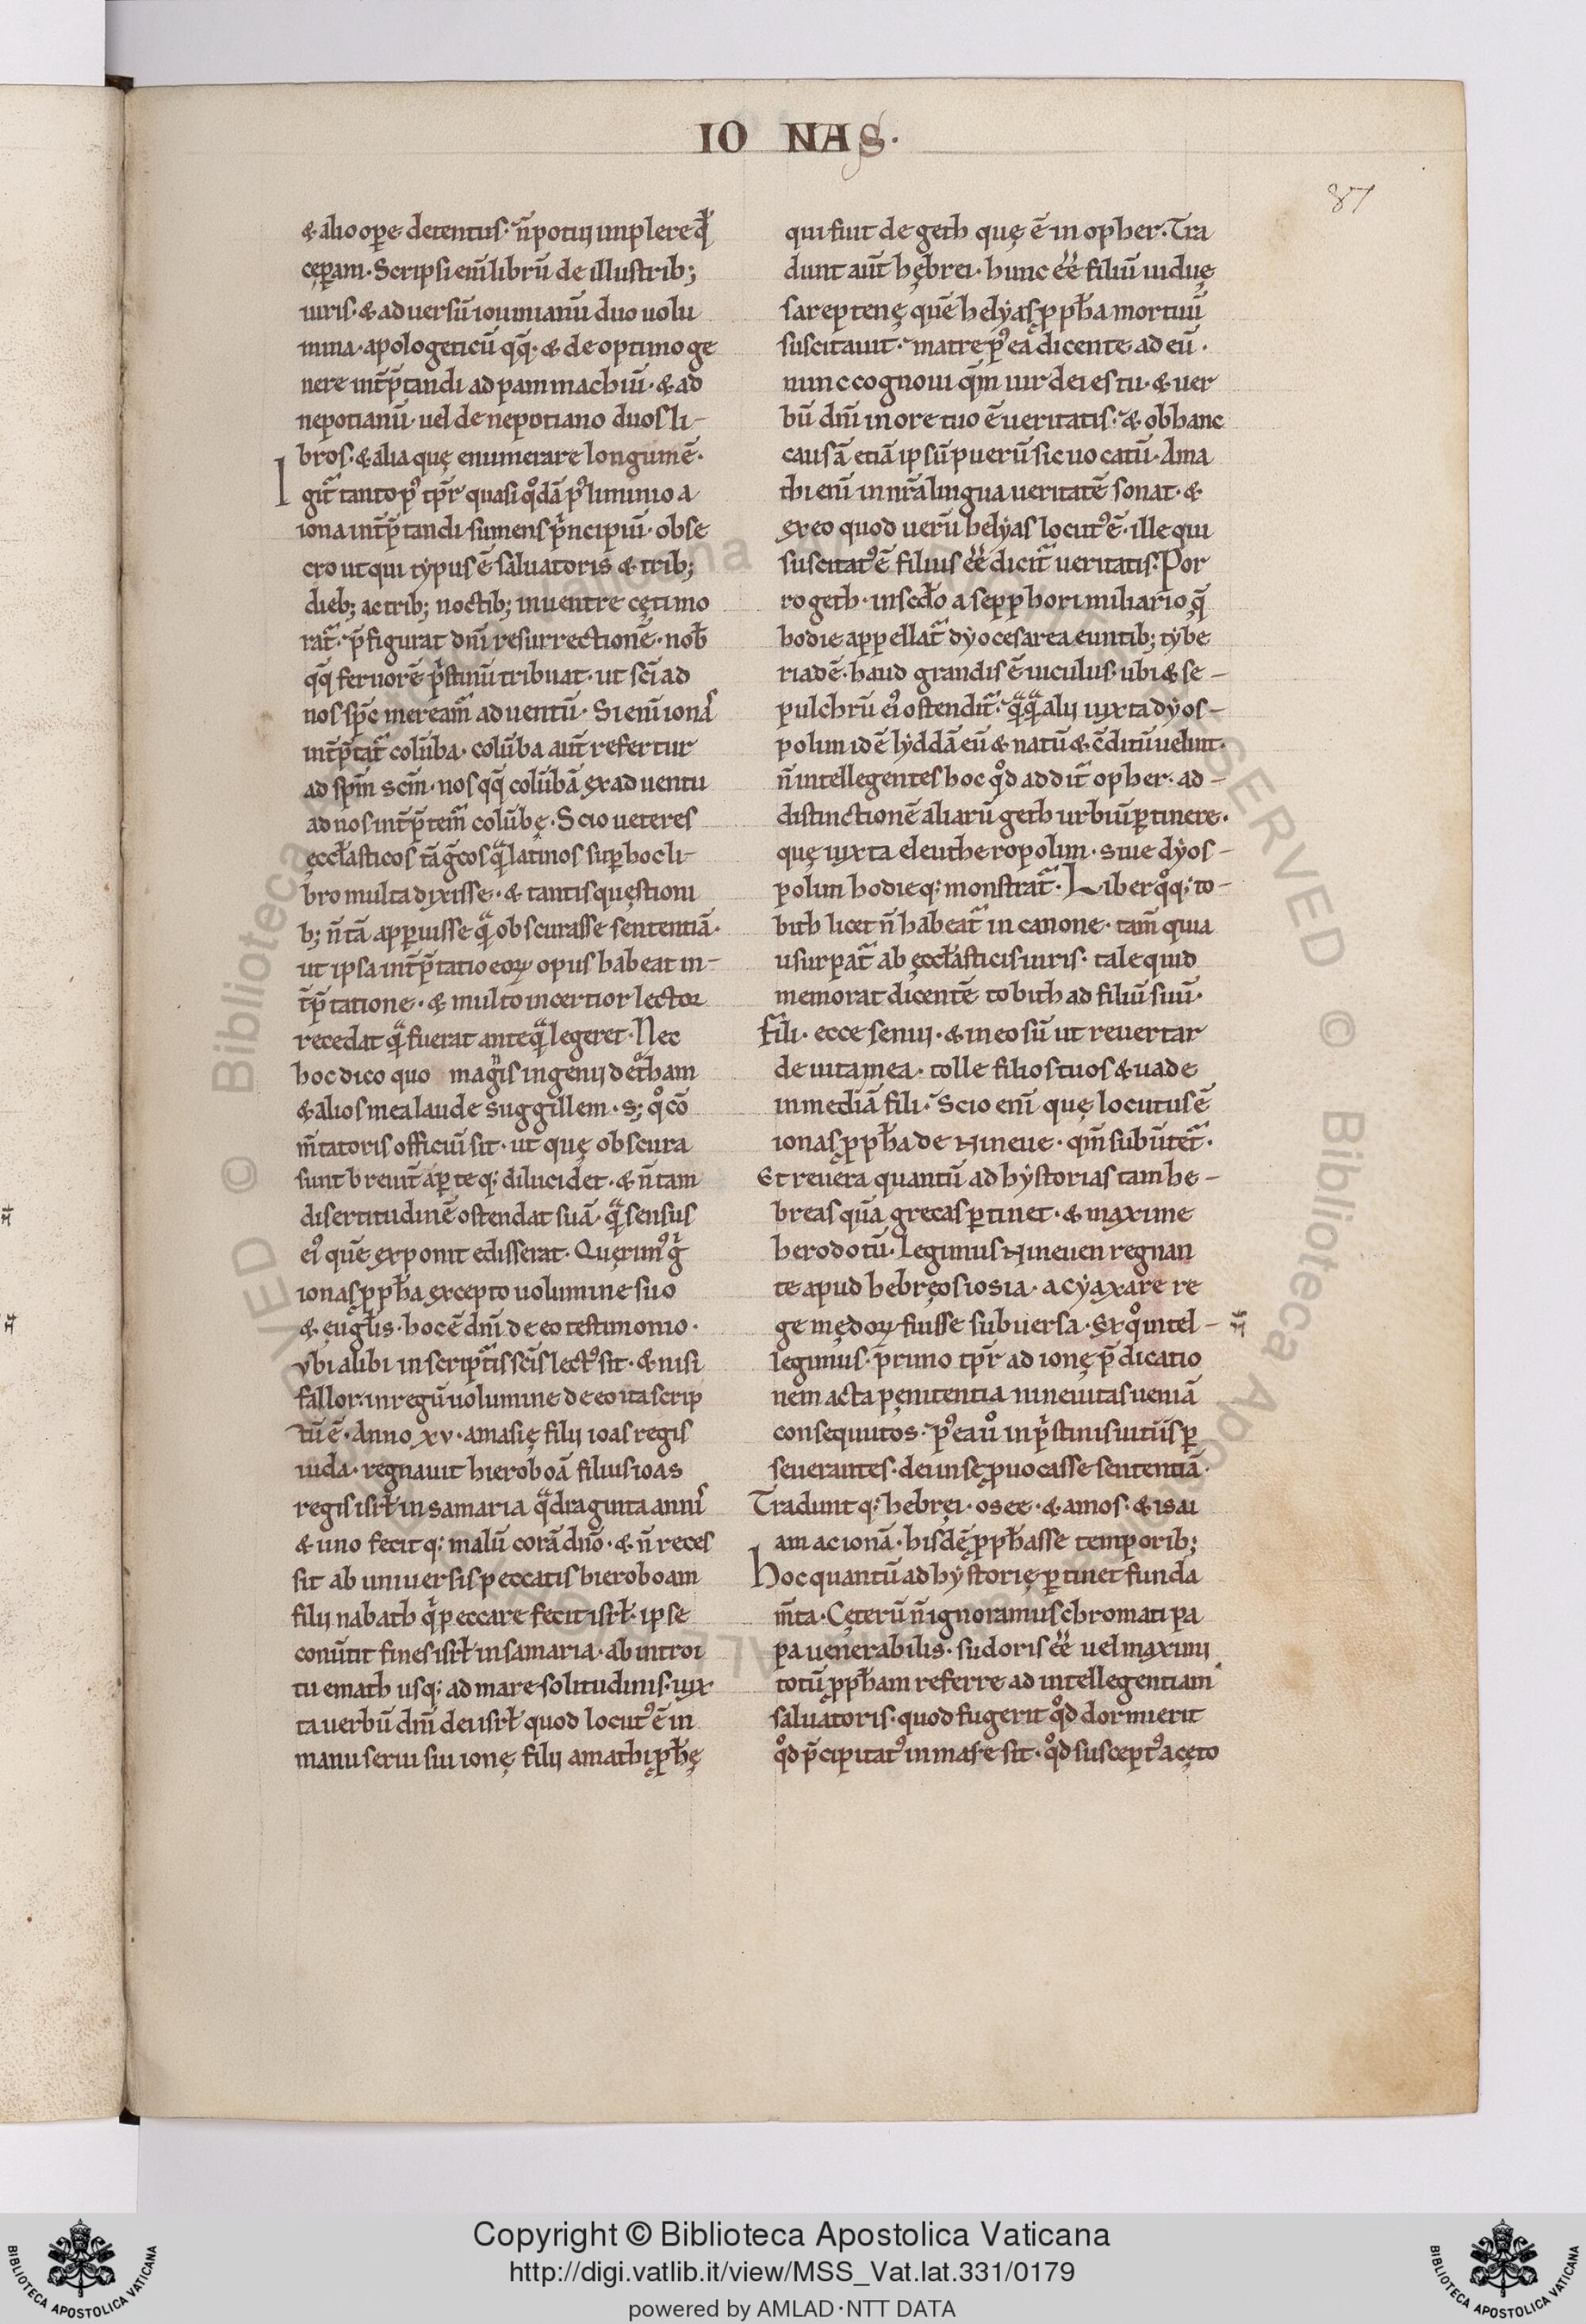 IO NAS.
87
& alio oꝑe detentus. n̄ potui implere qđ
cęꝑam. Scripsi eni̅ libru̅ de illustrib;
uiris. & aduersu̅ iouinianu̅ duo uolu
mina. apologeticu̅ qq̨. & de optimo ge
nere int̅p̅tandi ad pammachiu̅. & ad
nepotianu̅. uel de nepotiano duos li-
bros. & alia quę enumerare longum ē.
Igit̃ tanto pꝰ tp̅r quasi qͦdā pꝰliminio a
iona int̅p̅tandi sumens pͥncipiu̅. obse
cro ut qui typus ē saluatoris & trib;
dieb; ac trib; noctib; in uentre cęti mo
rat̃. p̅figurat dn̅i resurrectionē. nob̅
qq̨ feruorē pͥstinu̅ tribuat. ut sc̅i ad
nos sp̅c meream̃ aduentu̅. Si eni̅ ionas
int̅p̅tat̃ colu̅ba. colu̅ba aut̅ refertur
ad sp̅m sc̅m. nos qq̨ colu̅bā ex aduentu
ad nos int̅p̅tem̃ colu̅bę. Scio ueteres
ęccl̅asticos tā g̅cos qͣ latinos sup̱ hoc li-
bro multa dixisse. & tantis quęstioni
b; n̄ tā apꝑuisse qͣ obscurasse sententiā.
ut ipsa int̅p̅tatio eoꝝ opus habeat in-
t̅p̅tatione. & multo incertior lector
recedat qͣ fuerat anteqͣ legeret. Nec
hoc dico quo magis ingenii det̃ham
& alios mea laude suggillem. s; qͦ co̅
m̅tatoris officiu̅ sit. ut quę obscura
sunt breuit̅ aꝑteq; dilucidet. & n̄ tam
disertitudinē ostendat suā. qͣ sensus
eiꝰ que̅ exponit edisserat. Querimꝰ gͥ
ionas ꝓph̅a excepto uolumine suo
& ęugl̅is. hoc ē dn̅i de eo testimonio.
vbi alibi in scripturis sc̅is lectꝰ sit. & nisi
fallor. in regu̅ uolumine de eo ita scrip
tu̅ ē. Anno xv. amasię filii ioas regis
iuda. regnauit hieroboā filius ioas
regis isrl̅ in samaria qͣdraginta annis
& uno fecitq; malu̅ corā dn̅o. & n̄ reces
sit ab uniuersis peccatis hieroboam
filii nabath qͥ peccare fecit isrl̅. ipse
conu̅tit fines isrl̅ in samaria. ab introi
tu emath usq; ad mare solitudinis. iux
ta uerbu̅ dn̅i dei isrl̅ quod locutꝰ ē in
manu serui sui ionę filii amathi ꝓph̅ę
qui fuit de geth quę ē in opher. Tra
dunt aut̅ hębrei. hunc ee̅ filiu̅ uiduę
sareptenę que̅ helyas ꝓph̅a mortuu̅
suscitauit. matre pꝰea dicente ad eu̅.
nunc cognoui qm̅ uir dei es tu. & uer
bu̅ dn̅i in ore tuo ē ueritatis. & ob hanc
causā etiā ipsu̅ pueru̅ sic uocatu̅. Ama
thi eni̅ in nr̅a lingua ueritatē sonat. &
ex eo quod ueru̅ helyas locutꝰ ē. ille qui
suscitatꝰ ē filius ee̅ dicit̃ ueritatis. Por
ro geth. in scd̅o a sepphori miliario q̅
hodie appellat̃ dyocesarea euntib; tybe
riadē. haud grandis ē uiculus. ubi & se-
pulchru̅ eiꝰ ostendit̃. qͣqͣ alii iuxta dyos-
polim id ē lyddā eu̅ & natu̅ & c̅ditu̅ uelint.
n̄ intellegentes hoc qͦd addit̃ opher. ad-
distinctionē aliaru̅ geth urbiu̅ ꝑtinere.
quę iuxta eleutheropolim. siue dyos-
polim hodieq; monstrat̃. Liber qͦq; to-
bith licet n̄ habeat̃ in canone. tam̅ quia
usurpat̃ ab ęccl̅asticis uiris. tale quid
memorat dicentē tobith ad filiu̅ suu̅.
fili. ecce senui. & in eo su̅ ut reuertar
de uita mea. tolle filios tuos & uade
in mediā fili. Scio eni̅ quę locutus ē
ionas ꝓph̅a de nineue. qm̅ subu̅tet̃.
Et reuera quantu̅ ad hystorias tam he-
breas quā grecas ꝑtinet. & maxime
herodotu̅. Legimus nineuen regnan
te apud hebręos iosia. a cyaxare re
ge mędoꝝ fuisse subuersa. Ex qͦ intel-
legimus. primo tp̅r ad ionę p̅dicatio
nem acta penitentia nineuitas ueniā
consequutos. pꝰea uͦ in pͥstinis uitiis ꝑ
seuerantes. dei in se ꝓuocasse sententiā.
Traduntq; hebręi. osee. & amos. & isai
am ac ionā. hisdē ꝓph̅asse temporib;
Hoc quantu̅ ad hystorię ꝑtinet funda
m̅ta. Cęteru̅ n̄ ignoramus chromati pa
pa uenerabilis. sudoris ee̅ uel maximi
totu̅ ꝓph̅am referre ad intellegentiam
saluatoris. quod fugerit qͦd dormierit
qͦd p̅cipitatꝰ in mare sit. qͦd susceptꝰ a ceto
Copyright © Biblioteca Apostolica Vaticana
http://digi.vatlib.it/view/MSS_Vat.lat.331/0179
powered by AMLAD·NTT DATA
BIBLIOTECA APOSTOLICA VATICANA
BIBLIOTECA APOSTOLICA VATICANA